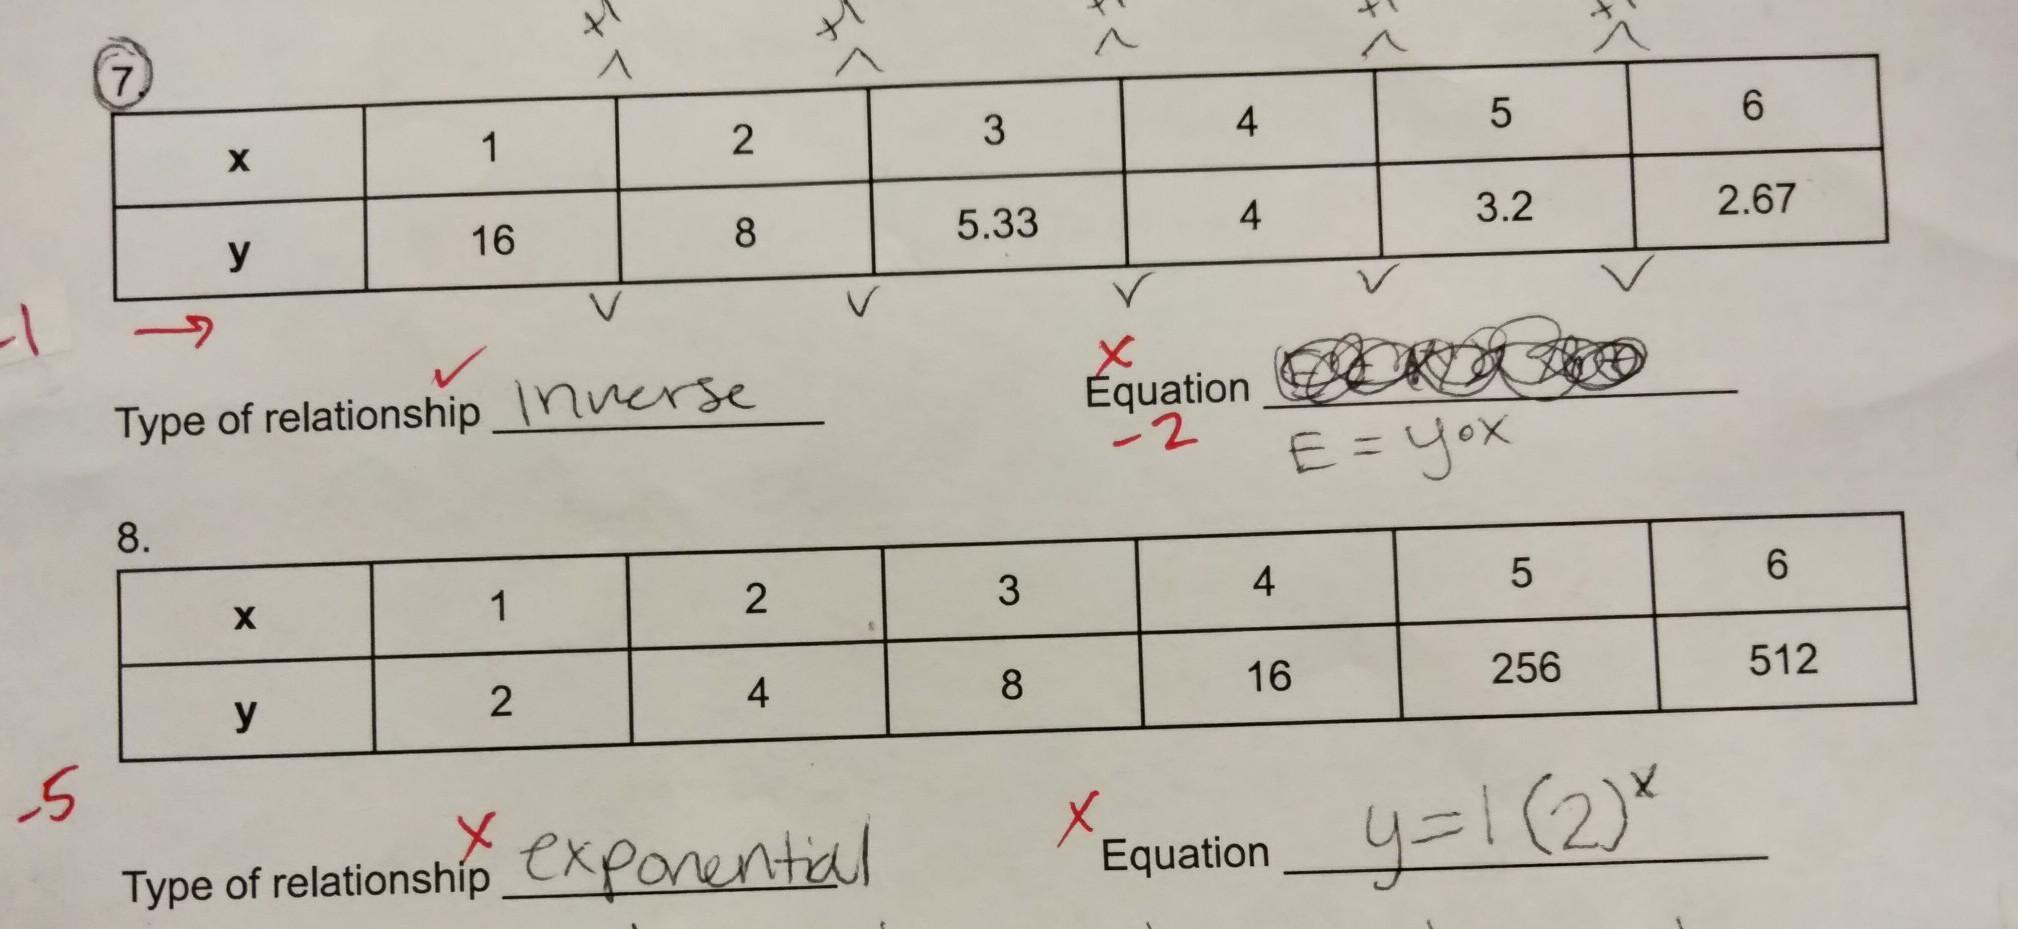 +1 +1 +1 +1 +1
7.
x 1 2 3 4 5 6
y 16 8 5.33 4 3.2 2.67
-1 →
✓ x
Type of relationship Inverse Equation
-2 E = y•x
8.
x 1 2 3 4 5 6
y 2 4 8 16 256 512
-5
x x
Type of relationship exponential Equation y=1(2)^x